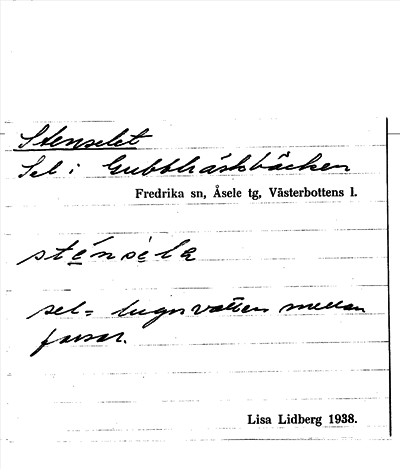 Stenselet
Sel i Gubbträskbäcken
Fredrika sn, Åsele tg, Västerbottens l.
sténsèla
sel = lugnvatten mellan
forsar.
Lisa Lidberg 1938.